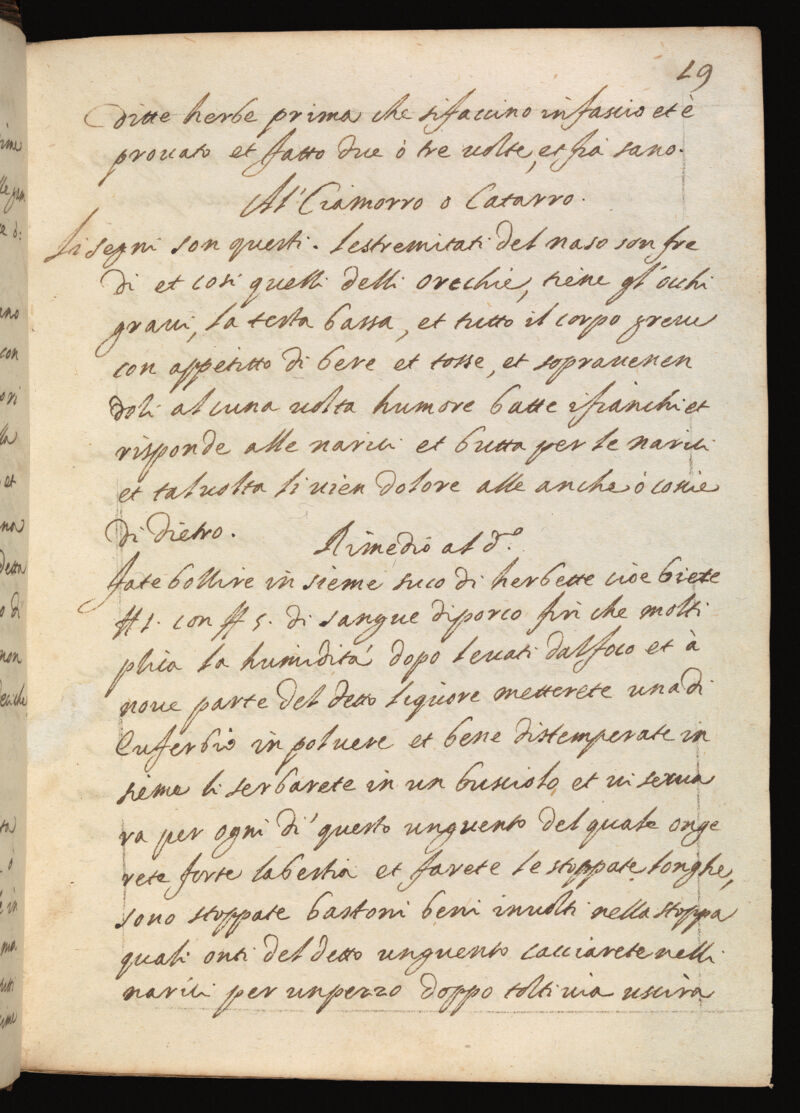 19
ditte herbe prima che si faccino in fascio et è
prouato et fatto due ò tre uolte, et fia sano.
Al' Ciamorro o Catarro.
Li segni son questi. Lestremitati del naso son fre
di et cosi quelli delli orechie, tiene gl'occhi
graui, la testa bassa, et tutto il corpo greue
con appetitto di bere et tosse, et soprauenen
doli alcuna uolta humore batte i fianchi et
risponde alle narici et butta per le narici
et taluolta li uien dolore alle anche ò coscie
di dietro.
Rimedio al d.º
fate bollire insieme suco di herbette cioe biete
# 1. con # 5. di sangue di porco fin che molti
plica la humidità dopo leuati dal foco et à
noue parte del detto liquore metterete una di
Euferbio in poluere et bene distemperate in
sieme li serbarete in un busciolo, et ui serua
ra per ogni di questo unguento del quale onge
rete forte la bestia et farete le stoppate longhe,
sono stoppate bastoni beni inuolti nella stoppa
quali onti del detto unguento cacciarete nelli
narici per un pezzo doppo tolti uia uscira